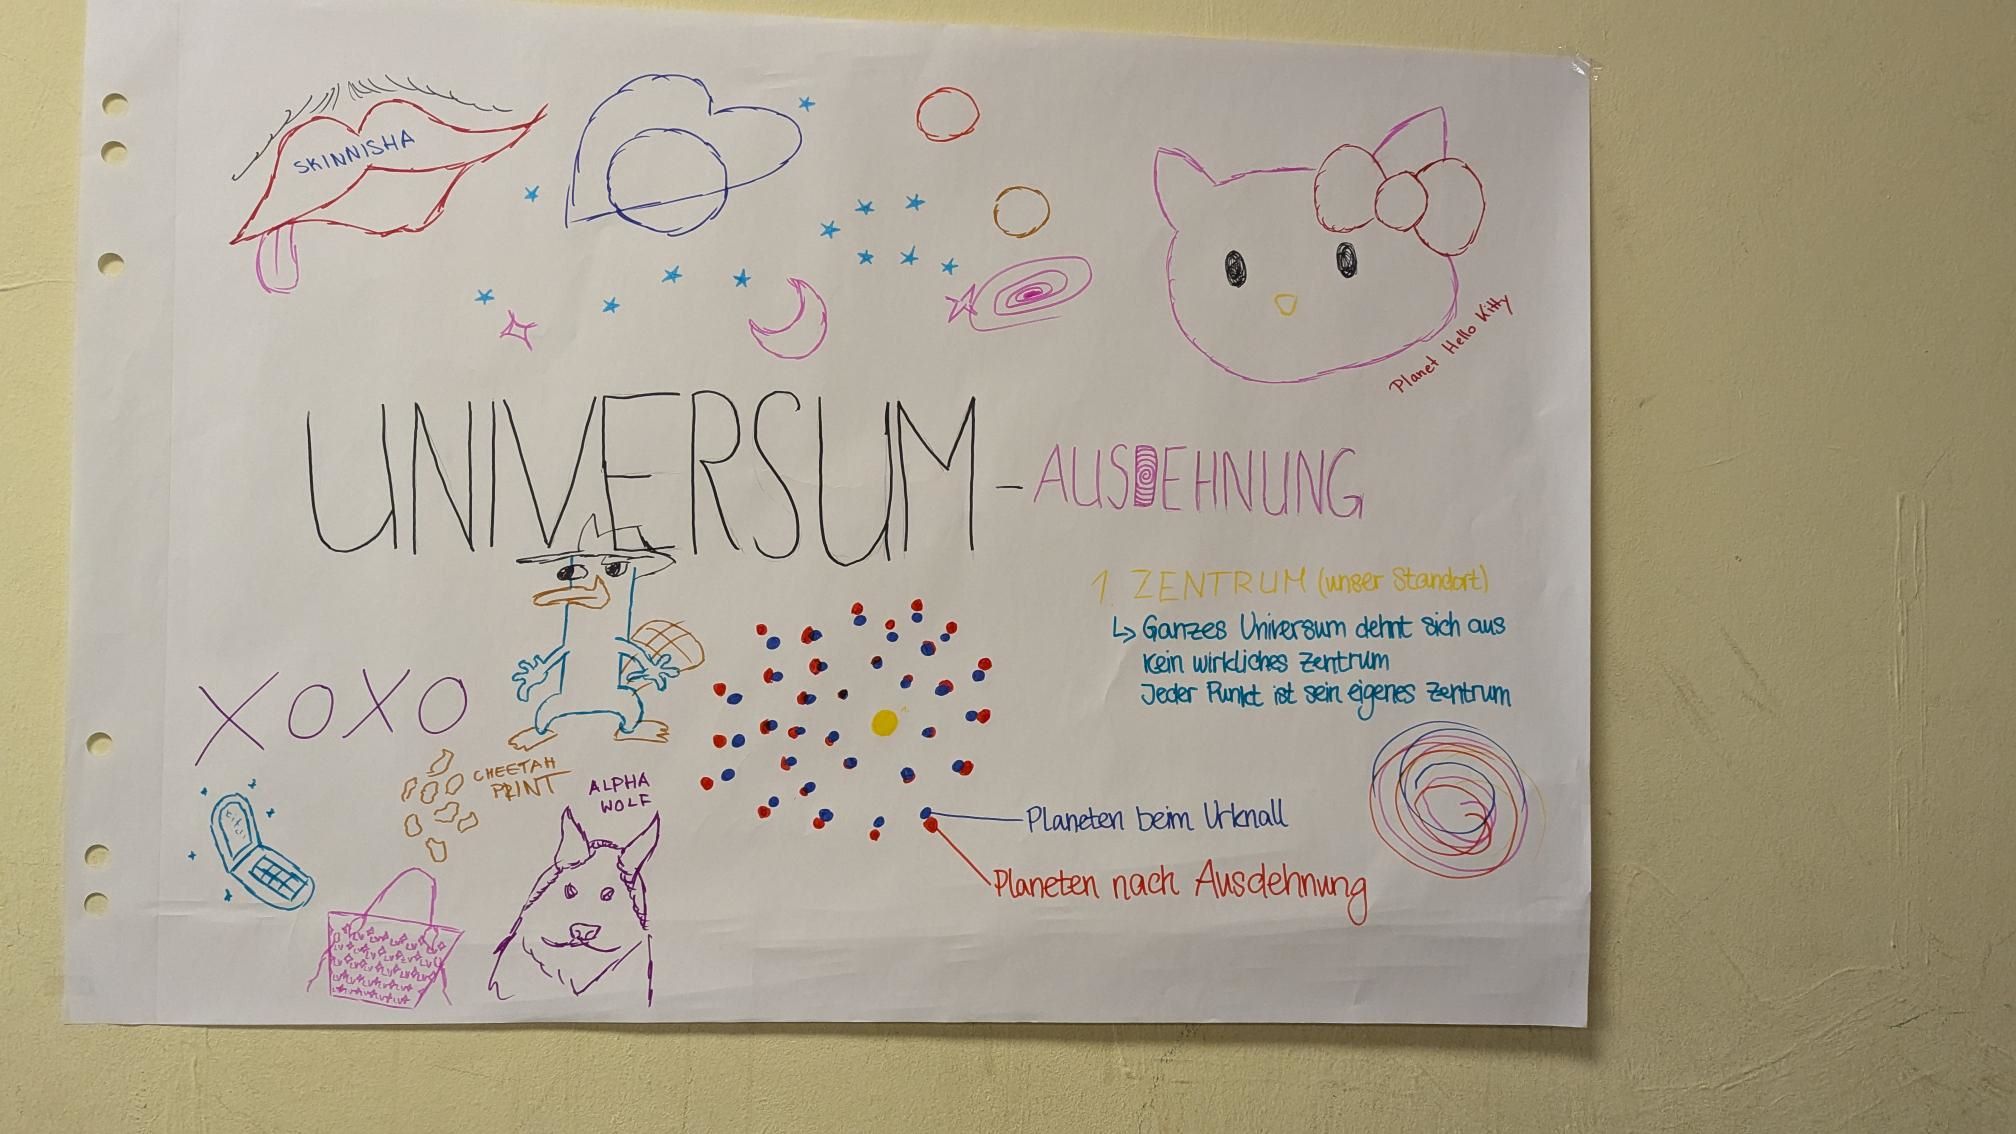 SKINNISHA
Planet Hello Kitty
UNIVERSUM - AUSDEHNUNG
1. ZENTRUM (unser Standort)
↳ Ganzes Universum dehnt sich aus
Kein wirkliches Zentrum
Jeder Punkt ist sein eigenes Zentrum
XOXO
CHEETAH
PRINT
ALPHA
WOLF
Planeten beim Urknall
Planeten nach Ausdehnung